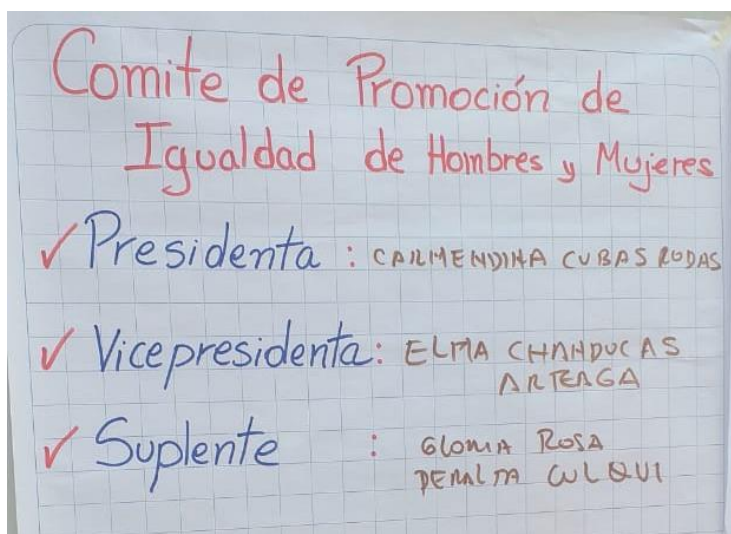 Comite de Promoción de
Igualdad de Hombres y Mujeres
✓ Presidenta : CARMENDINA CUBAS RODAS
✓ Vicepresidenta: ELMA CHANDUCAS
ARTEAGA
✓ Suplente : GLORIA ROSA
PERALTA CULQUI